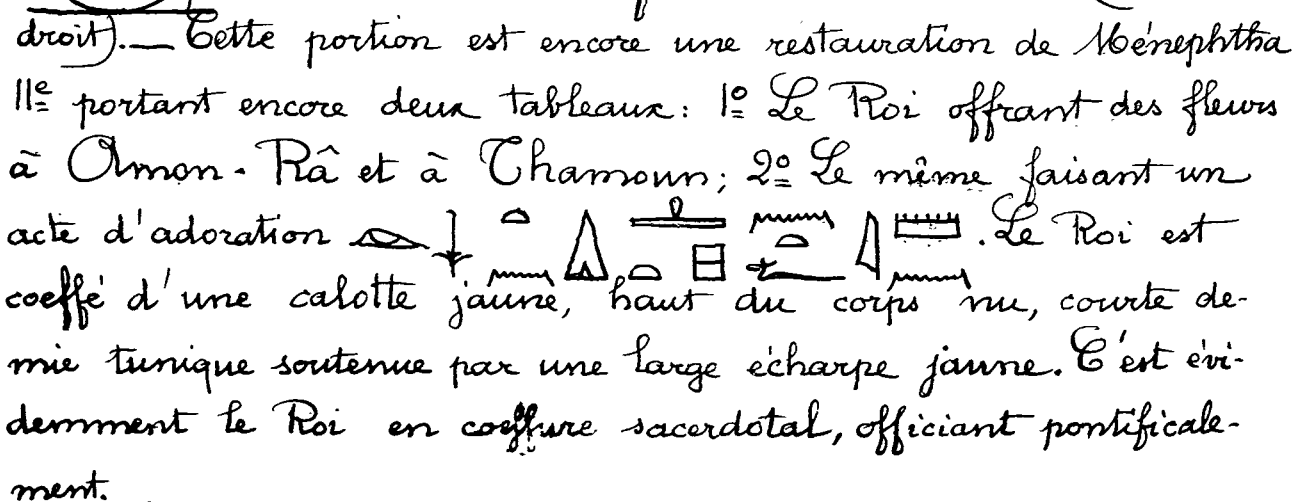 droit). — Cette portion est encore une restauration de Ménephtha
IIe portant encore deux tableaux: 1o Le Roi offrant des fleurs
à Amon-Râ et à Thamoun; 2o Le même faisant un
acte d'adoration . Le Roi est
coeffé d'une calotte jaune, haut du corps nu, courte de-
mie tunique soutenue par une large écharpe jaune. C'est évi-
demment le Roi en coeffure sacerdotal, officiant pontificale-
ment.